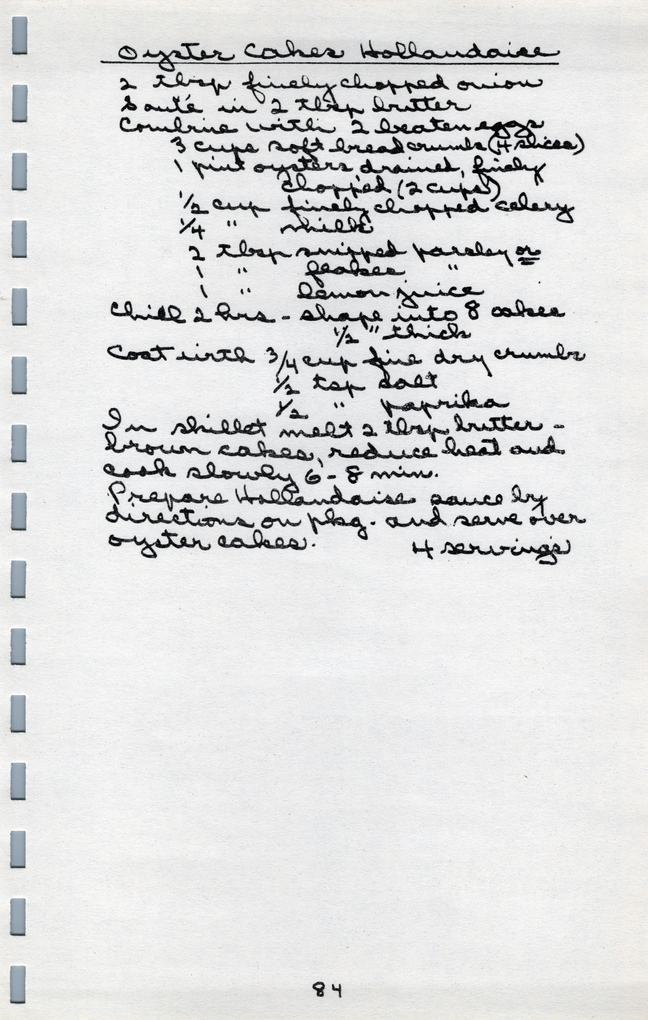 Oyster Cakes Hollandaise
2 tbsp finely chopped onion
Sauté in 2 tbsp butter
Combine with 2 beaten eggs
3 cups soft bread crumbs (4 slices)
1 pint oysters drained, finely
chopped (2 cups)
1/2 cup finely chopped celery
1/4 " milk
2 tbsp snipped parsley or
1 " flakes "
1 " lemon juice
Chill 2 hrs - shape into 8 cakes
1/2" thick
Coat with 3/4 cup fine dry crumbs
1/2 tsp salt
1/2 " paprika
In skillet melt 2 tbsp butter -
brown cakes, reduce heat and
cook slowly 6 - 8 min.
Prepare Hollandaise sauce by
directions on pkg. and serve over
oyster cakes. 4 servings
84